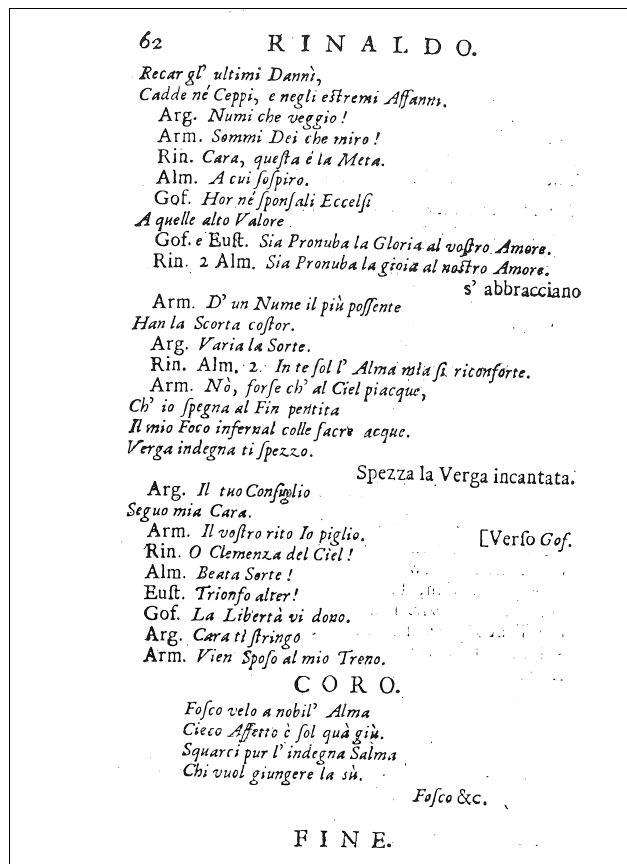 62 RINALDO.
Recar gl' ultimi Danni,
Cadde né Ceppi, e negli eſtremi Affanni.
Arg. Numi che veggio!
Arm. Sommi Dei che miro!
Rin. Cara, queſta é la Meta.
Alm. A cui ſoſpiro.
Gof. Hor né ſponſali Eccelſi
A quelle alto Valore
Gof. e Euſt. Sia Pronuba la Gloria al voſtro Amore.
Rin. 2 Alm. Sia Pronuba la gioia al noſtro Amore.
s' abbracciano
Arm. D' un Nume il più poſſente
Han la Scorta coſtor.
Arg. Varia la Sorte.
Rin. Alm. 2. In te ſol l' Alma mia ſi riconforte.
Arm. Nò, forſe ch' al Ciel piacque,
Ch' io ſpegna al Fin pentita
Il mio Foco infernal colle ſacre acque.
Verga indegna ti ſpezzo.
Spezza la Verga incantata.
Arg. Il tuo Conſiglio
Seguo mia Cara.
Arm. Il voſtro rito Io piglio.
[Verſo Gof.
Rin. O Clemenza del Ciel!
Alm. Beata Sorte!
Euſt. Trionfo alter!
Gof. La Libertà vi dono.
Arg. Cara ti ſtringo
Arm. Vien Spoſo al mio Treno.
CORO.
Foſco velo a nobil' Alma
Cieco Affetto è ſol quà giù.
Squarci pur l' indegna Salma
Chi vuol giungere la sù.
Foſco &c.
FINE.